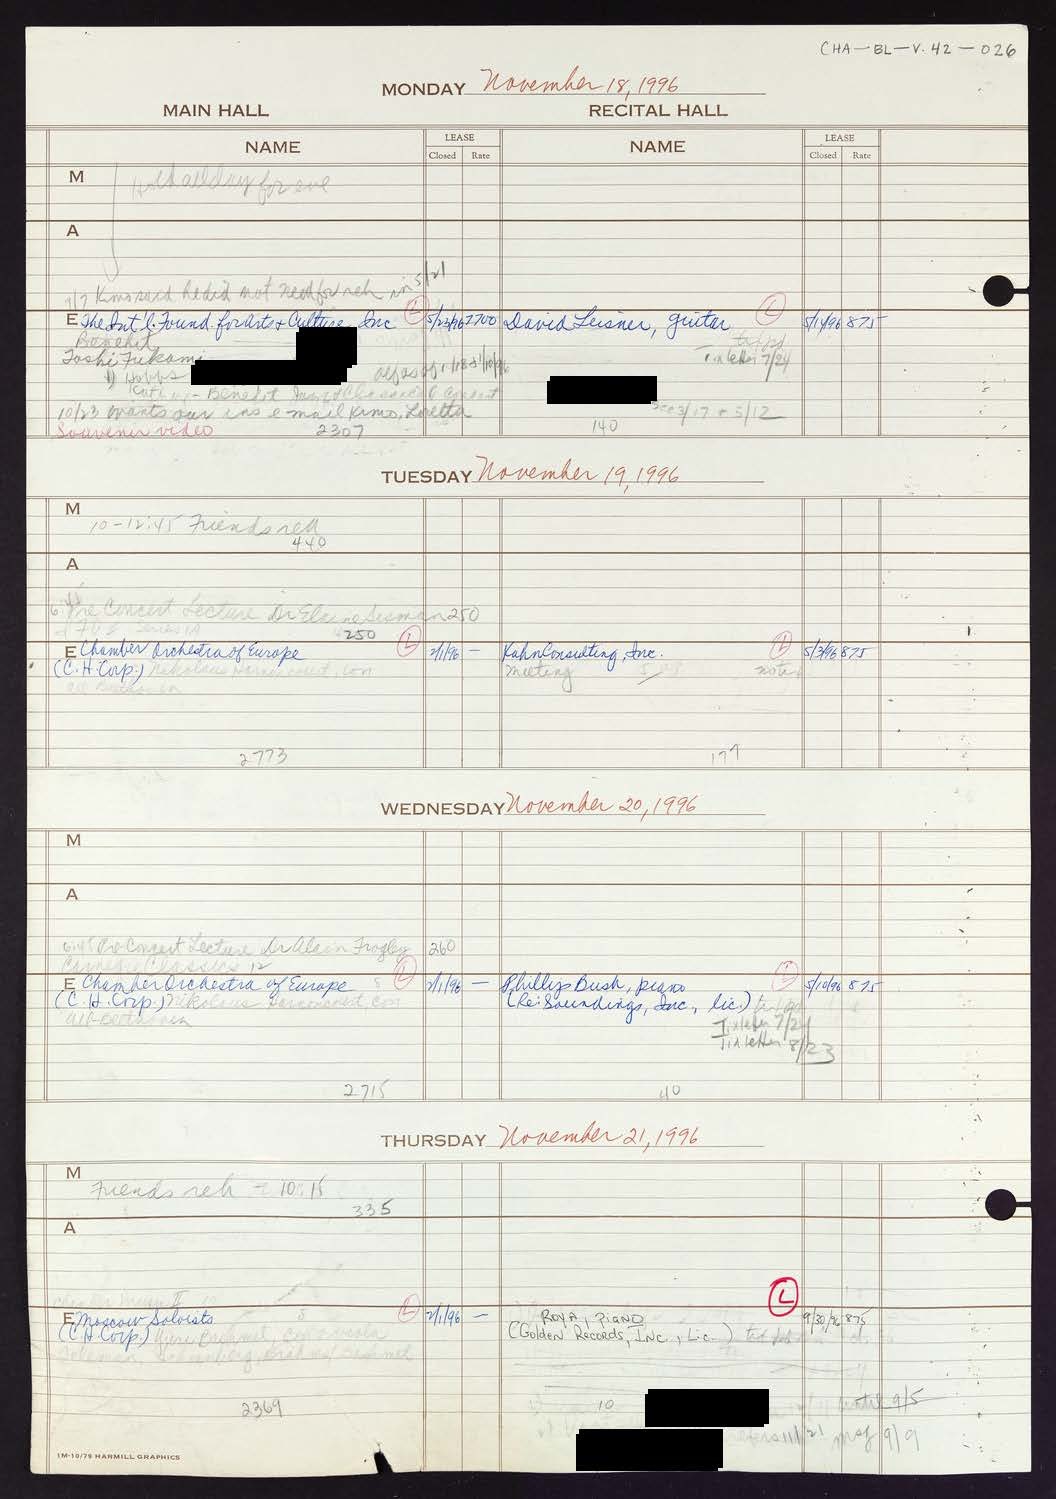 CHA-BL-V.42-026
MONDAY November 18, 1996
MAIN HALL RECITAL HALL
NAME LEASE NAME LEASE
Closed Rate Closed Rate
M Hold all day for eve
A
Kimo said he did not need for reh in 5/21
E The Int'l. Found. for Arts & Culture, Inc L 5/23/96 7700 David Leisner, guitar L 5/14/96 875
Benefit
Toshi Fukami Tix letter 7/24
1) Hobbs as of 1/18
Benefit
10/23 wants our ins e mail Kimo, Loretta See 3/17 + 5/12
Souvenir video 2307 140
TUESDAY November 19, 1996
M
10-12:45 Friends reh
440
A
Pre Concert Lecture Dr Elaine Sisman 250
250
E Chamber Orchestra of Europe L 2/1/96 — Kahn Consulting, Inc. L 5/3/96 875
(C.H. Corp.) Nikolaus Harnoncourt, con Meeting notes
all Beethoven
2773 177
WEDNESDAY November 20, 1996
M
A
6:45 Pre Concert Lecture Dr Alain Frogley 260
Carnegie Classics 12
E Chamber Orchestra of Europe L 2/1/96 — Phillip Bush, piano L 5/10/96 875
(C.H. Corp.) Nikolaus Harnoncourt con (Re: Soundings, Inc., lic.)
all-Beethoven Tix letter 7/24
Tix letter 8/23
2715 40
THURSDAY November 21, 1996
M
Friends reh - 10:15
335
A
Chamber Music II
E Moscow Soloists L 2/1/96 — ROYA, PIANO L 9/30/96 875
(CH Corp.) Yuri Bashmet, con & viola (Golden Records, Inc., Lic.)
2369 10 until 9/5
11/21 msg 9/9
1M-10/79 HARMILL GRAPHICS